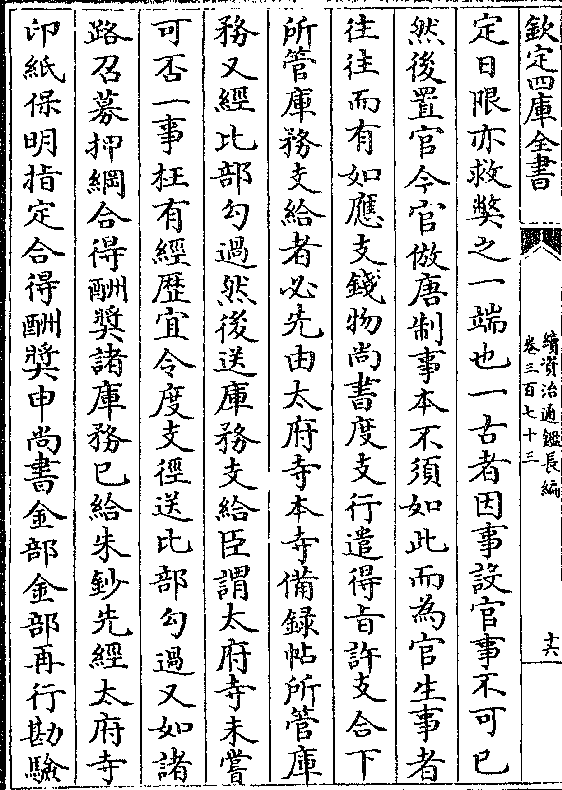 欽定四庫全書
續資治通鑑長編
卷三百七十三
十六
定日限亦救獘之一端也一古者因事設官事不可已
然後置官今官倣唐制事本不須如此而為官生事者
往往而有如應支錢物尚書度支行遣得旨許支合下
所管庫務支給者必先由太府寺本寺備錄帖所管庫
務又經比部勾過然後送庫務支給臣謂太府寺未嘗
可否一事枉有經歴宜令度支徑送比部勾過又如諸
路召募押綱合得酬奬諸庫務已給朱鈔先經太府寺
印紙保明指定合得酬奬申尚書金部金部再行勘驗